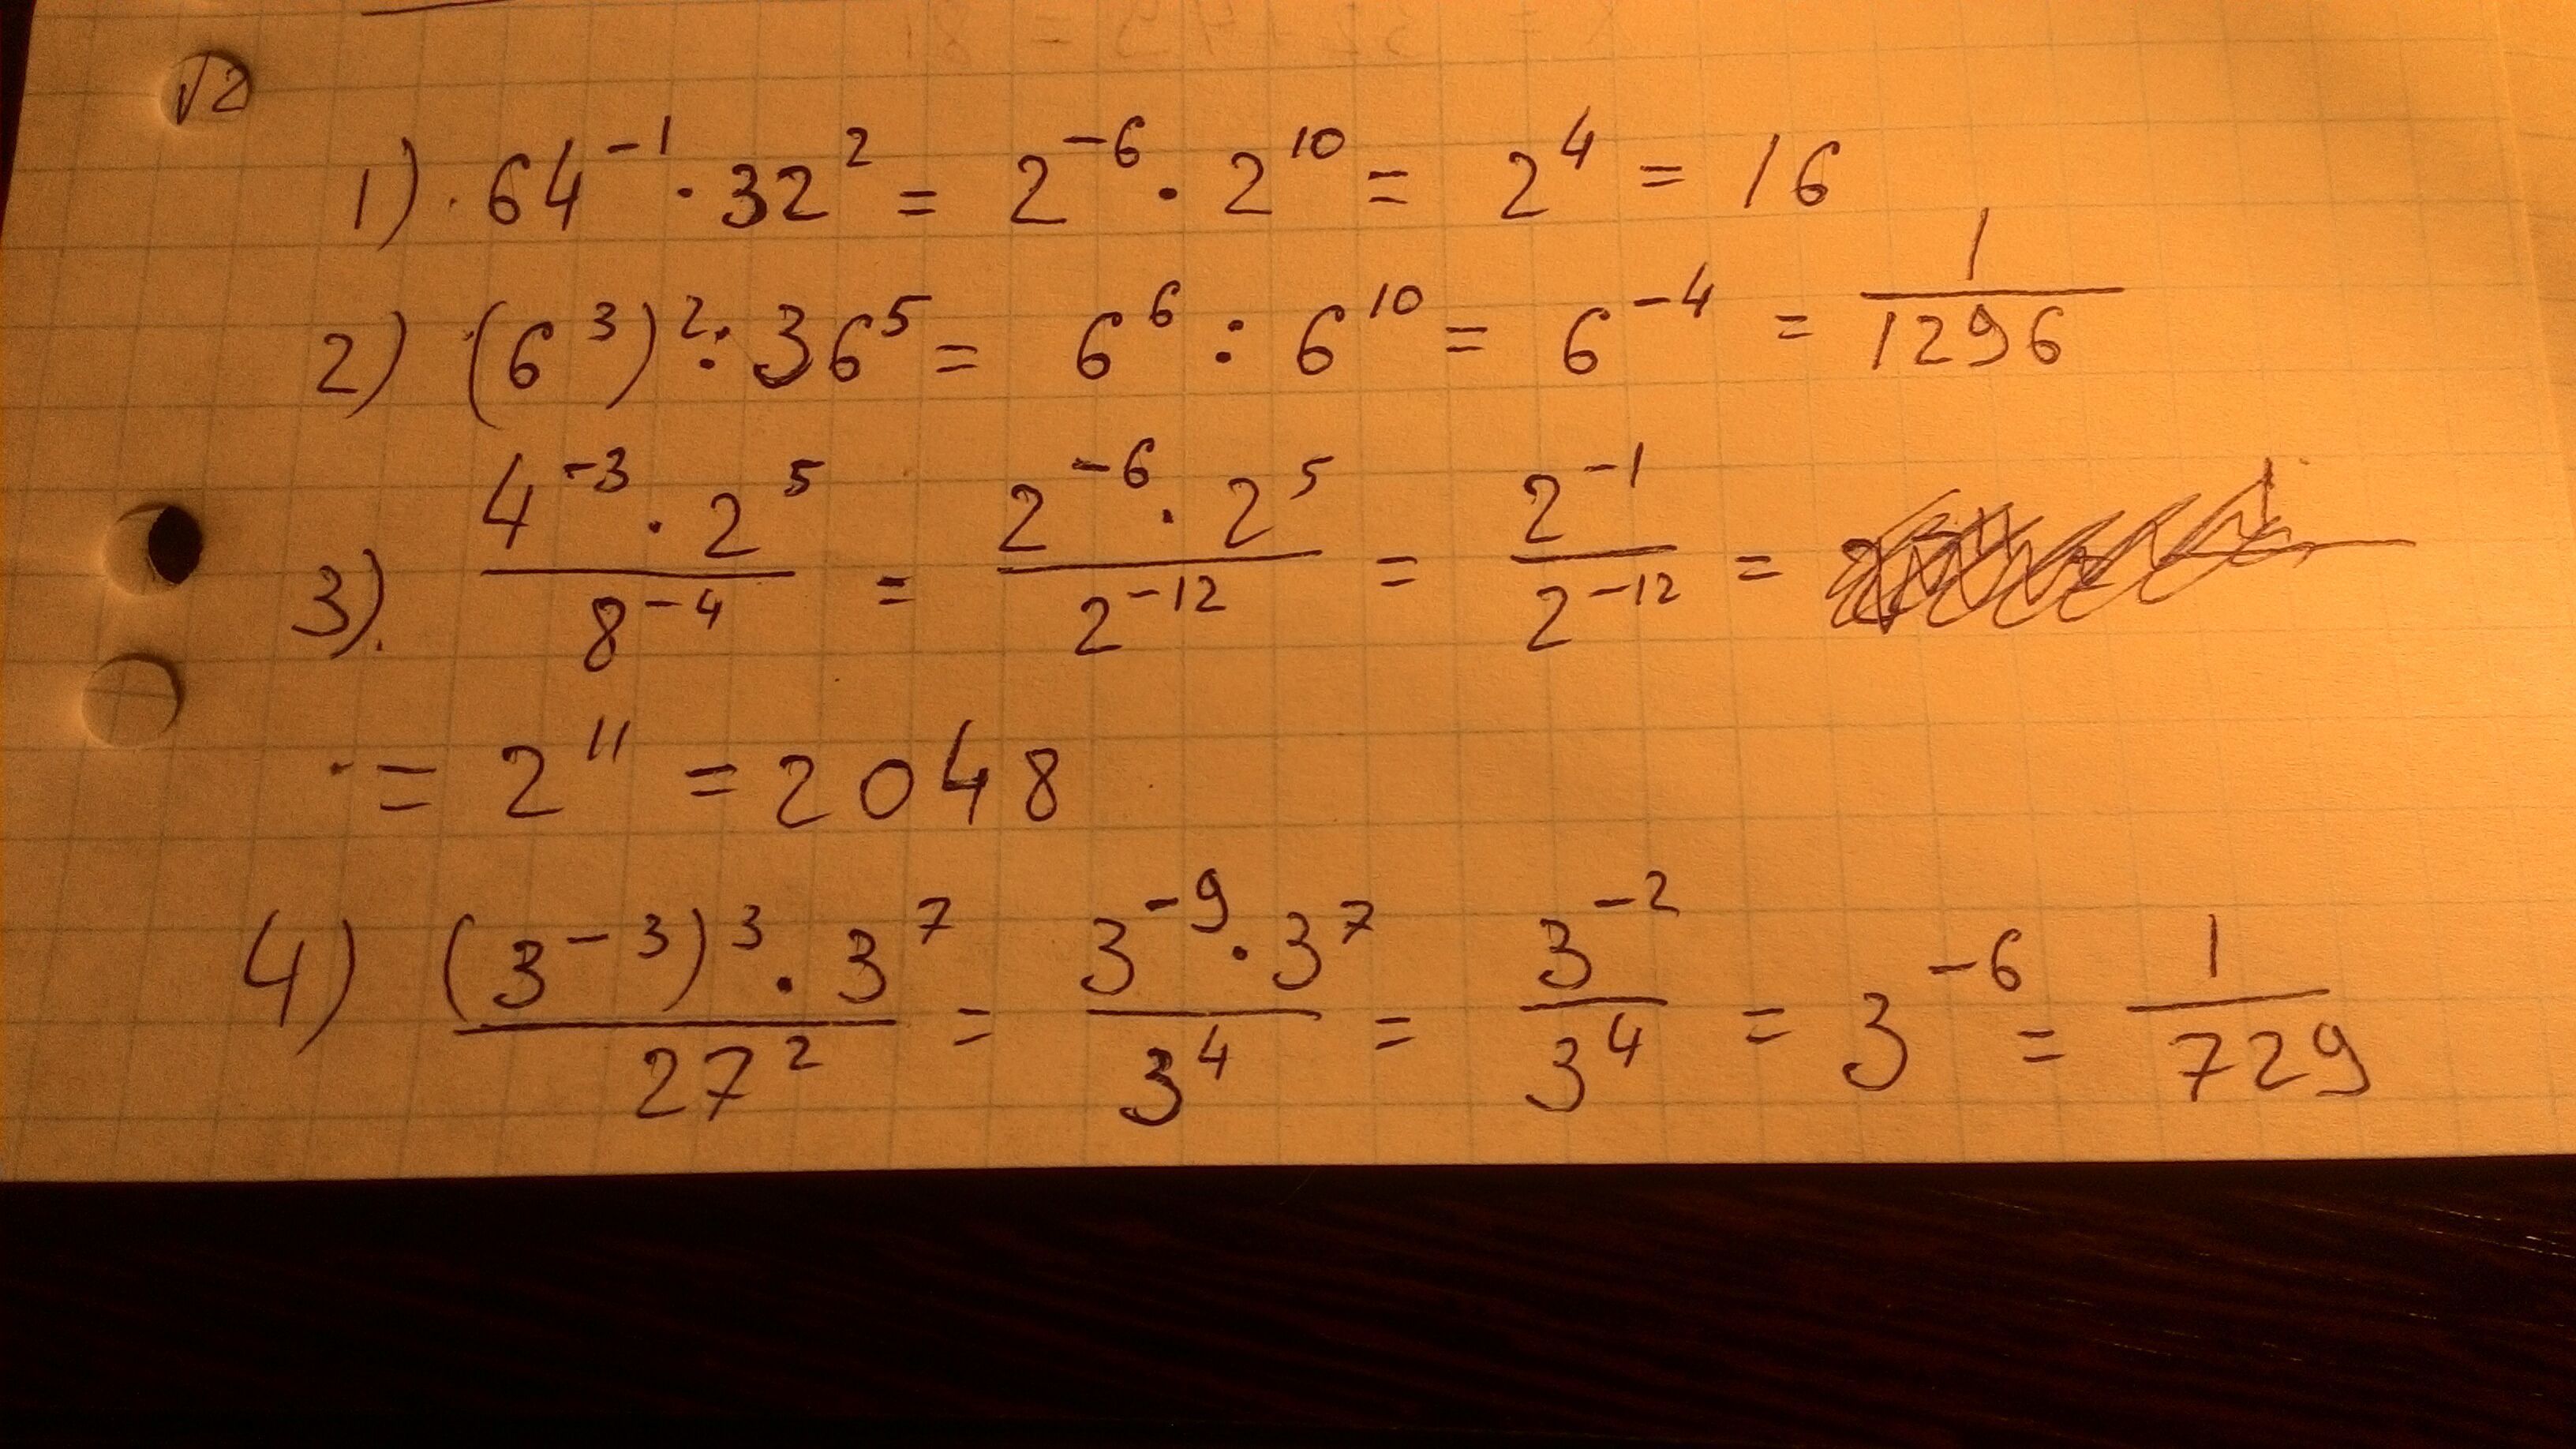 √2
1) 64⁻¹ · 32² = 2⁻⁶ · 2¹⁰ = 2⁴ = 16
2) (6³)² : 36⁵ = 6⁶ : 6¹⁰ = 6⁻⁴ = 1/1296
3). (4⁻³ · 2⁵)/8⁻⁴ = (2⁻⁶ · 2⁵)/2⁻¹² = 2⁻¹/2⁻¹² =
= 2¹¹ = 2048
4) ((3⁻³)³ · 3⁷)/27² = (3⁻⁹ · 3⁷)/3⁴ = 3⁻²/3⁴ = 3⁻⁶ = 1/729